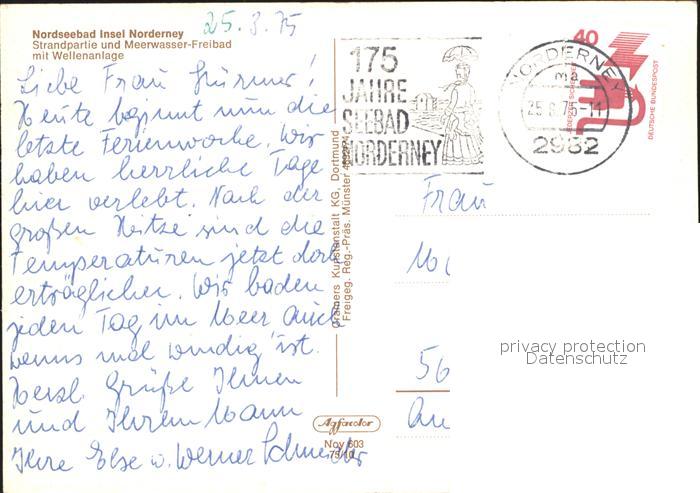 25.8.75
Nordseebad Insel Norderney
Strandpartie und Meerwasser-Freibad
mit Wellenanlage
Liebe Frau
Heute beginnt nun die
letzte Ferienwoche. Wir
haben herrliche Tage
hier verlebt. Nach der
großen Hitze sind die
Temperaturen jetzt doch
erträglicher. Wir baden
jeden Tag im Meer auch
wenns mal windig ist.
Herzl. Grüße Ihnen
und Ihrem Mann
Ihre Else u. Werner Schneider
Cramers Kunstanstalt KG, Dortmund
Freigeg. Reg.-Präs. Münster
Agfacolor
Noy 603
75/10
175
JAHRE
SEEBAD
NORDERNEY
NORDERNEY
ma
2982
40
JEDERZEIT SICHERHEIT
DEUTSCHE BUNDESPOST
Frau
56
privacy protection
Datenschutz